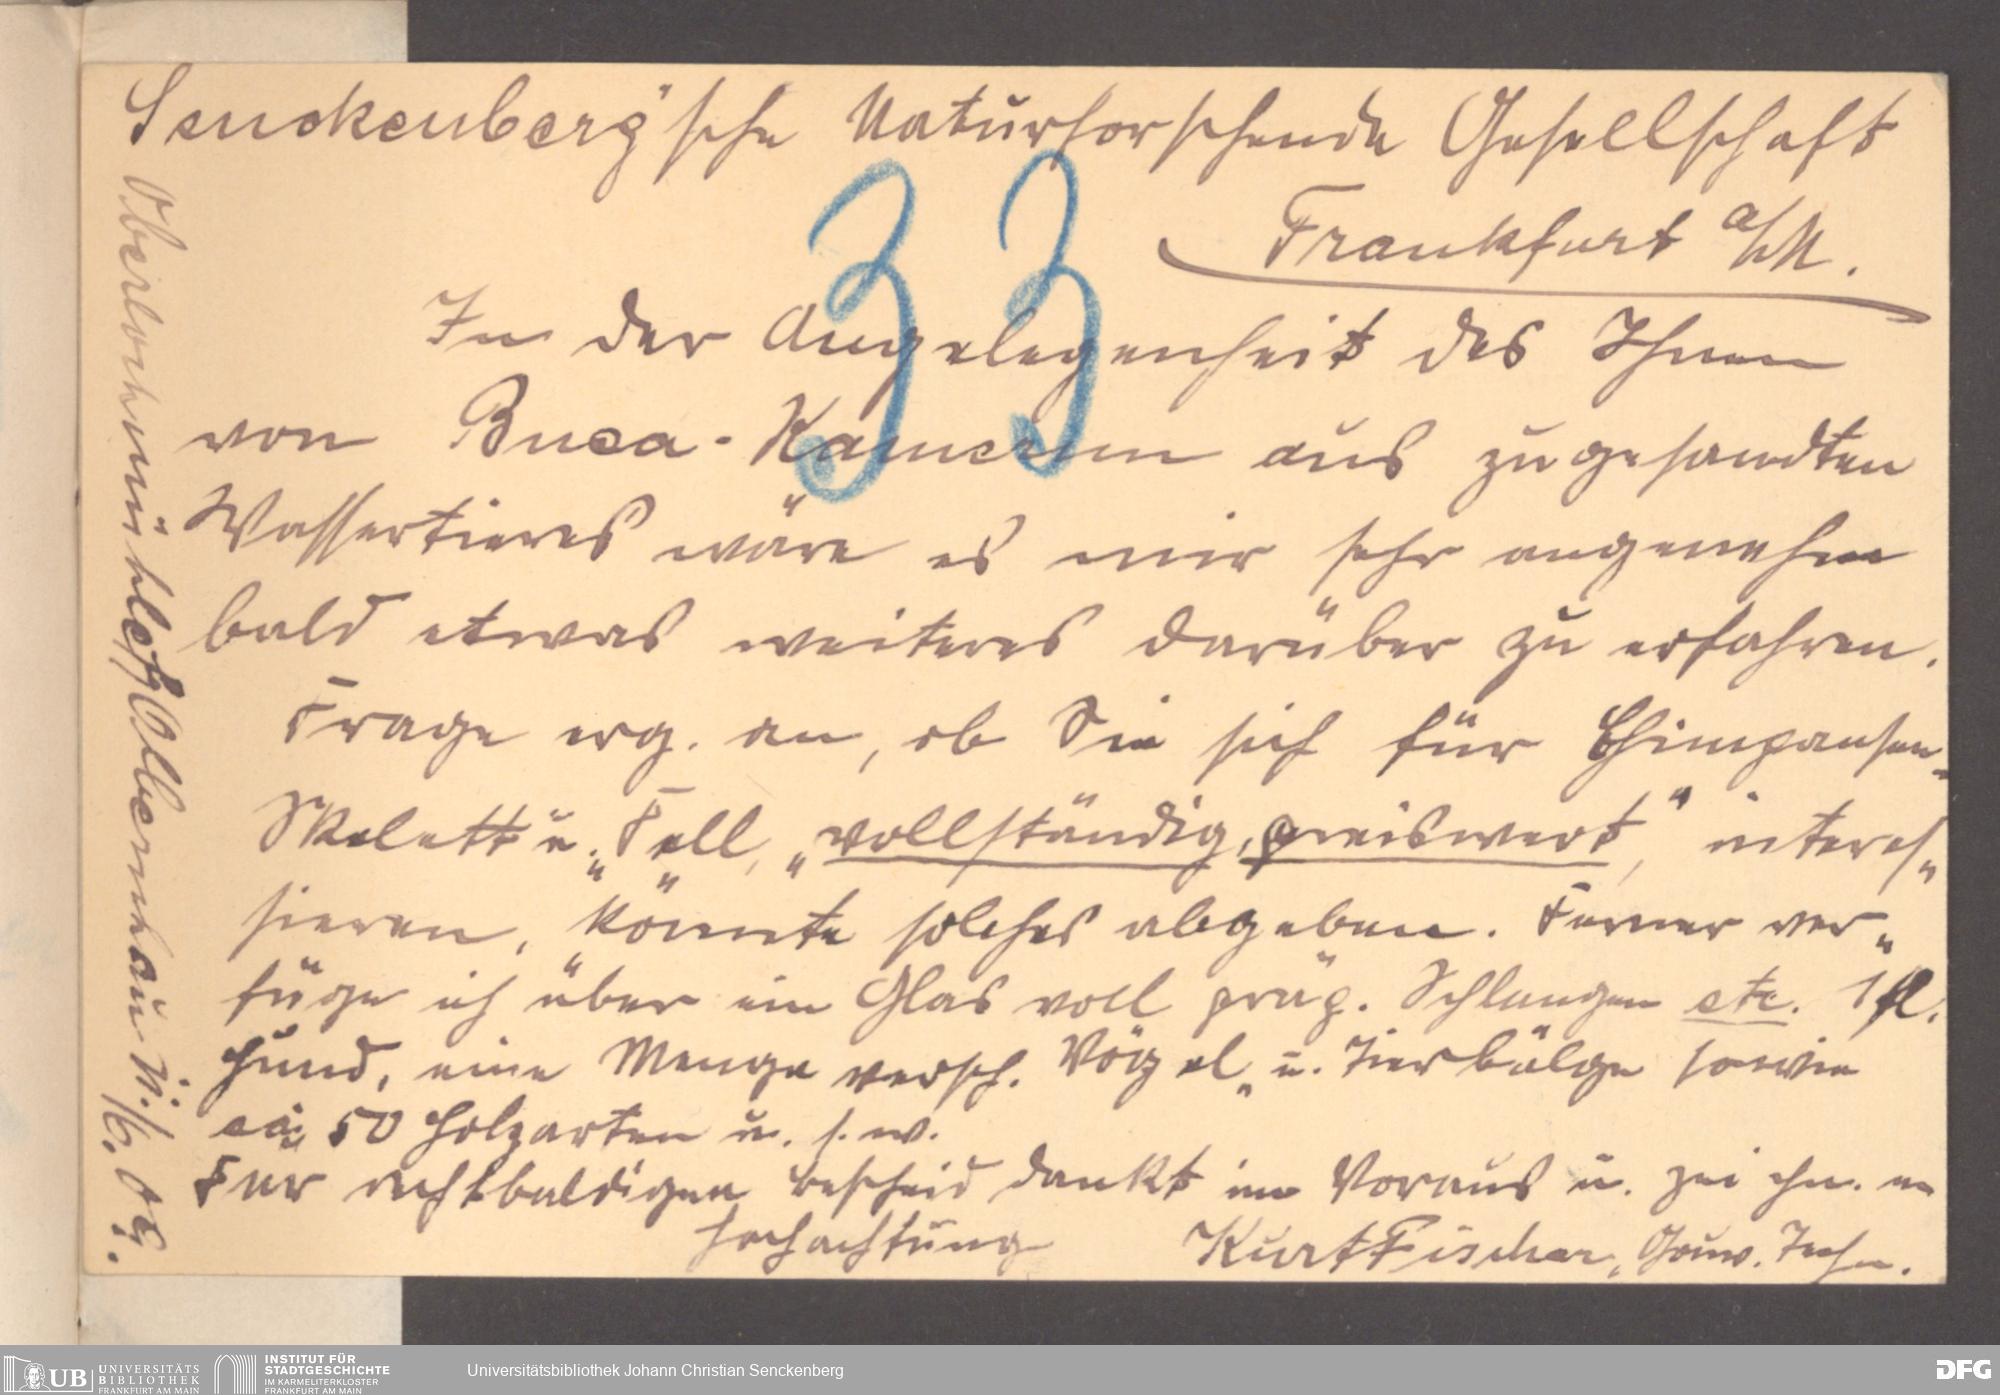 Senckenberg'sche Naturforschende Gesellschaft
Frankfurt a/M.
33
In der Angelegenheit des Ihnen
von Buea-Kamerun aus zugesandten
Wassertieres wäre es mir sehr angenehm
bald etwas weiteres darüber zu erfahren.
Frage erg. an, ob Sie sich für Chimpansen-
Skelett u. Fell, "vollständig, preiswert", interes-
sieren, könnte solches abgeben. Ferner ver-
füge ich über ein Glas voll präp. Schlangen etc. 1 fl.
Hund, eine Menge versch. Vögel u. Tierbälge sowie
ca. 50 Holzarten u. s. w.
Für rechtbaldigen Bescheid dankt im Voraus u. zeichn. m
Hochachtung Kurt Fischer, Gouv. Techn.
Olbernhau 09.
UB UNIVERSITÄTS
BIBLIOTHEK
FRANKFURT AM MAIN
INSTITUT FÜR
STADTGESCHICHTE
IM KARMELITERKLOSTER
FRANKFURT AM MAIN
Universitätsbibliothek Johann Christian Senckenberg
DFG